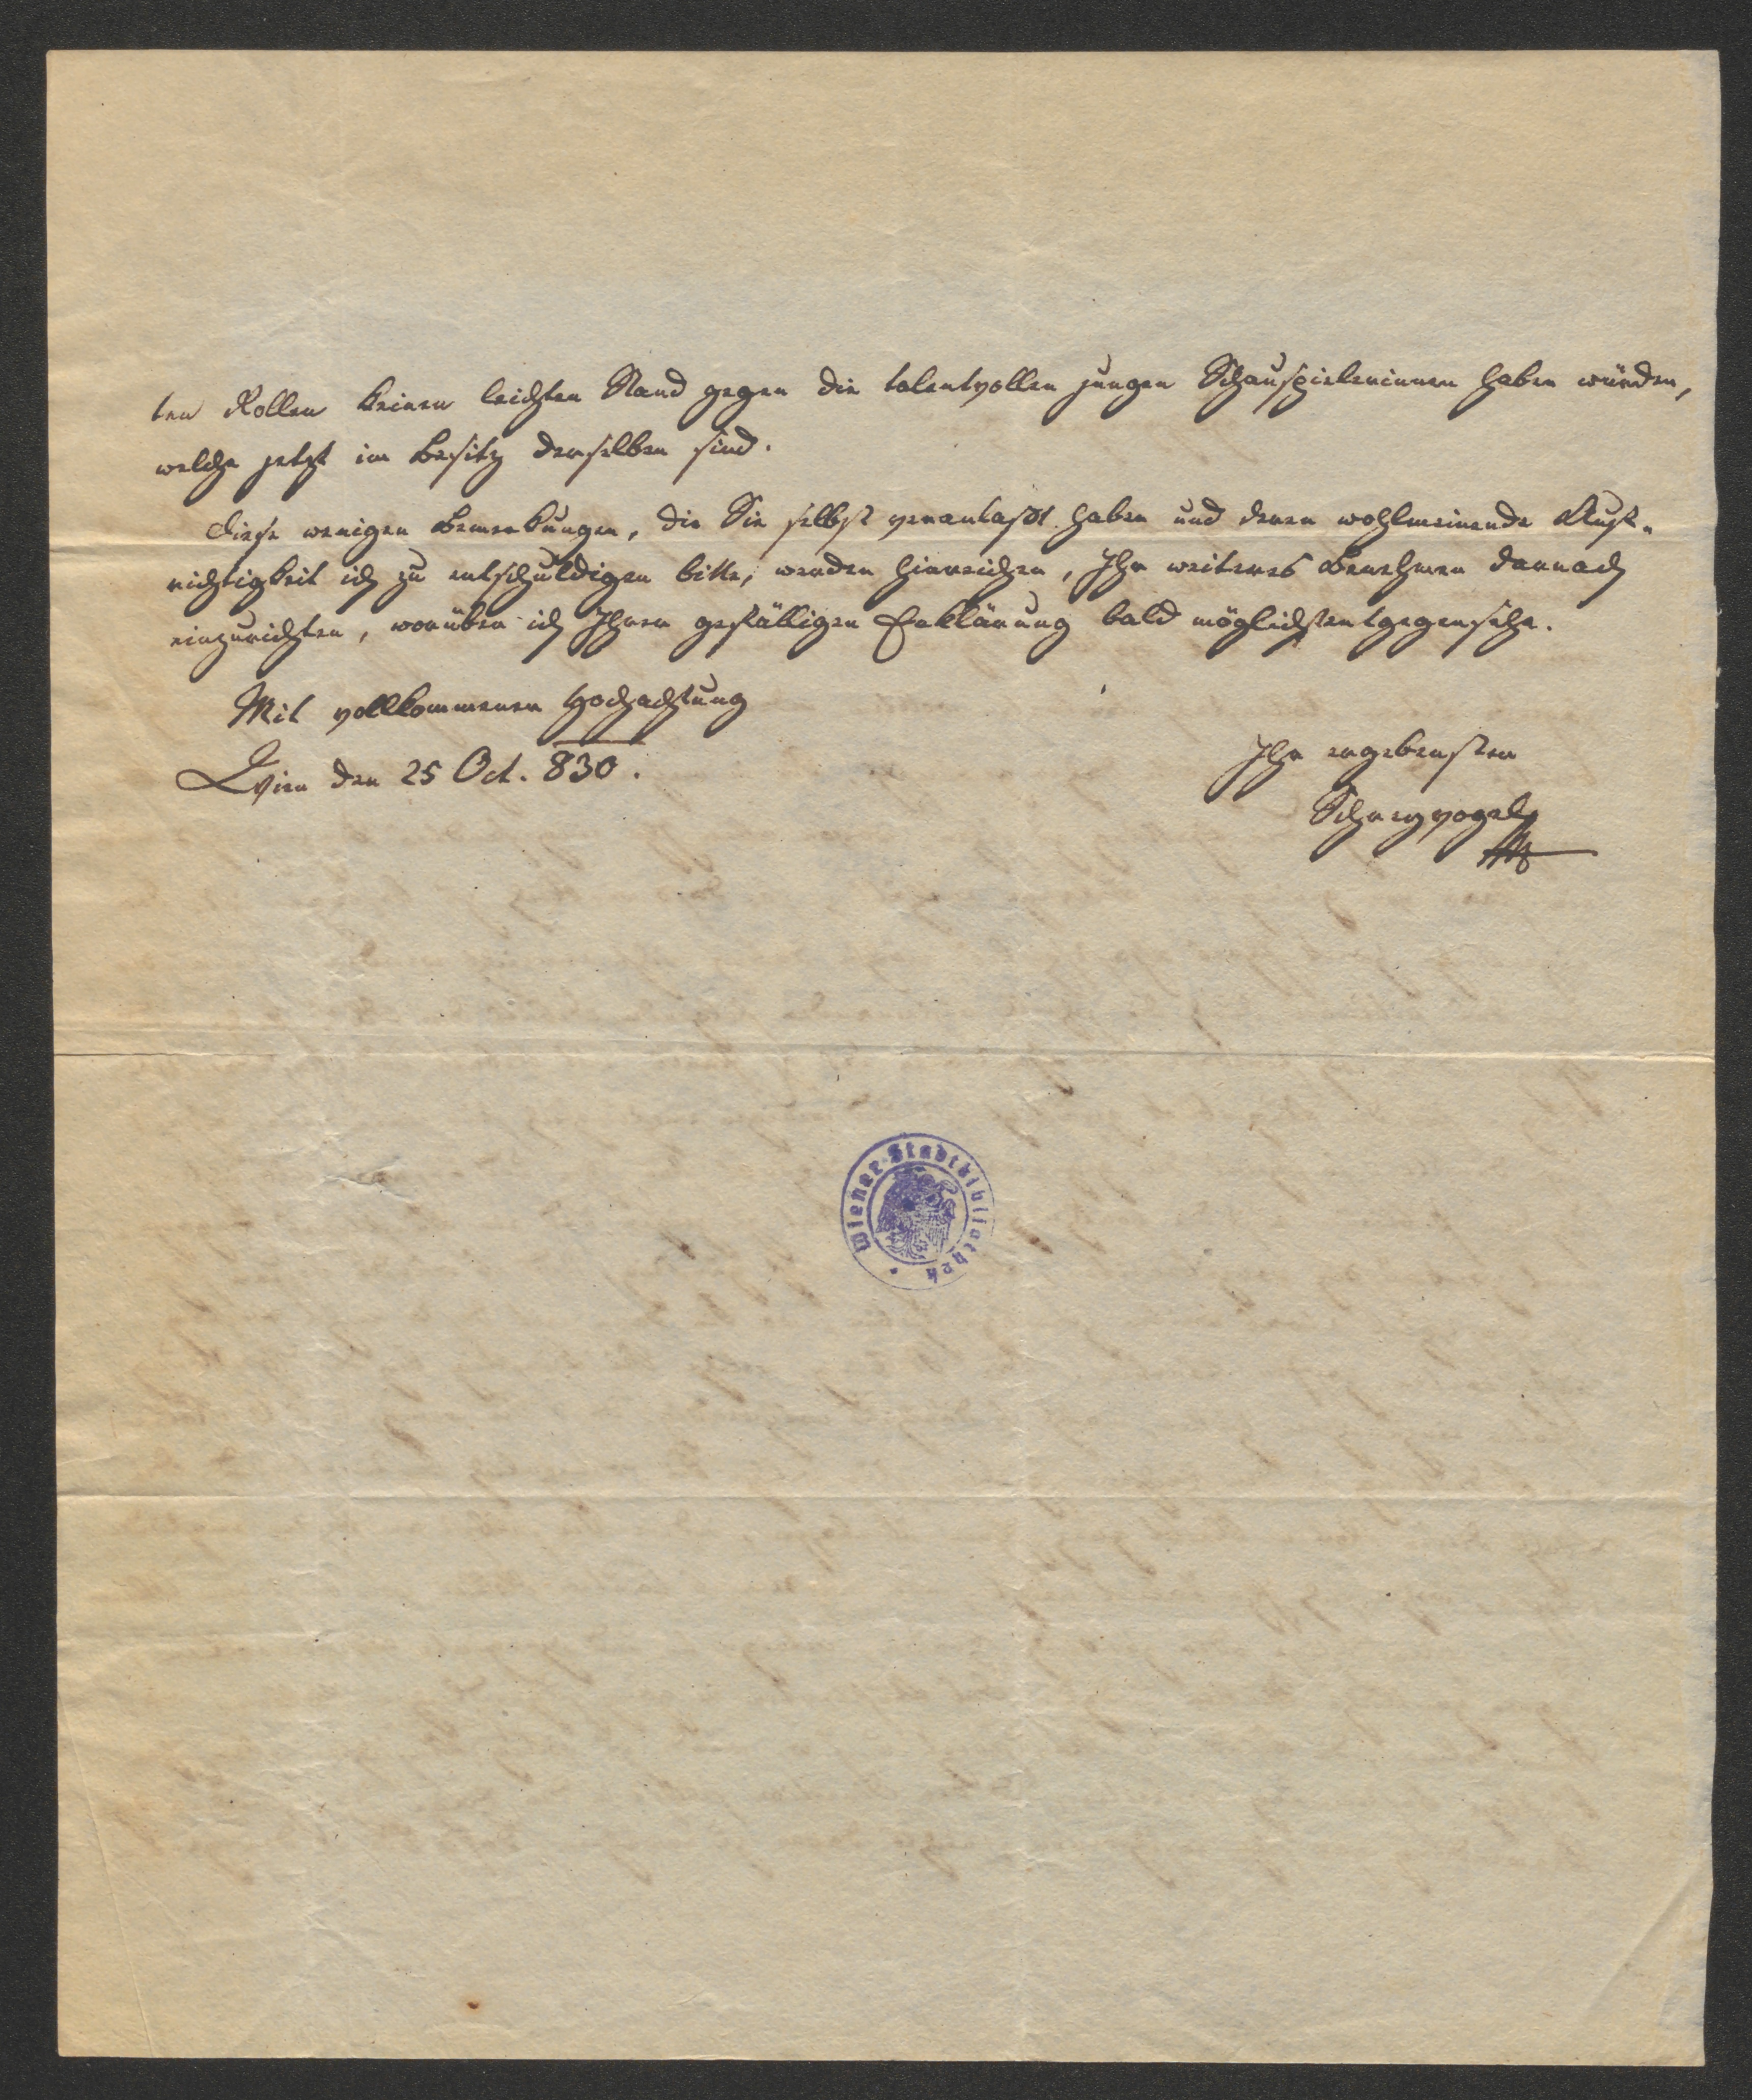 ten Rollen keinen leichten Stand gegen die talentvollen jungen Schauspielerinnen haben würden,
welche jetzt im Besitz derselben sind.
Diese wenigen Bemerkungen, die Sie selbst veranlaßt haben und deren wohlmeinende Auf-
richtigkeit ich zu entschuldigen bitte, werden hinreichen, Ihr weiteres Benehmen darnach
einzurichten, worüber ich Ihrer gefälligen Erklärung bald möglichst entgegensehe.
Mit vollkommener Hochachtung
Wien den 25 Oct. 830.
Ihr ergebenster
Schreyvogel
Wiener Stadtbibliothek